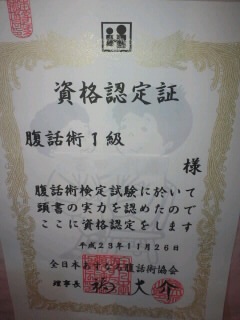 資格認定証
腹話術1級
様
腹話術検定試験に於いて
頭書の実力を認めたので
ここに資格認定をします
平成23年11月26日
全日本あすなろ腹話術協会
理事長
大介